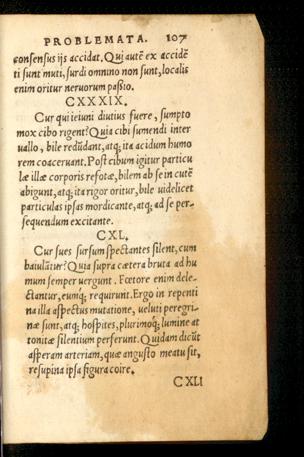 PROBLEMATA. 107
consensus ijs accidat. Qui autē ex accidē
ti sunt muti, surdi omnino non sunt, localis
enim oritur neruorum paßio.
CXXXIX.
Cur qui ieiuni diutius fuere, sumpto
mox cibo rigent? Quia cibi sumendi inter
uallo, bile redūdant, atq; ita acidum humo
rem coaceruant. Post cibum igitur particu
læ illæ corporis refotæ, bilem ab se in cutē
abigunt, atq; ita rigor oritur, bile uidelicet
particulas ipsas mordicante, atq; ad se per-
sequendum excitante.
CXL.
Cur sues sursum spectantes silent, cum
baiulātur? Quia supra cætera bruta ad hu
mum semper uergunt. Fœtore enim dele-
ctantur, eumq́; requirunt. Ergo in repenti
na illa aspectus mutatione, ueluti peregri-
næ sunt, atq; hospites, plurimoq́; lumine at
tonitæ silentium perferunt. Quidam dicūt
asperam arteriam, quæ angusto meatu sit,
resupina ipsa figura coire.
CXLI